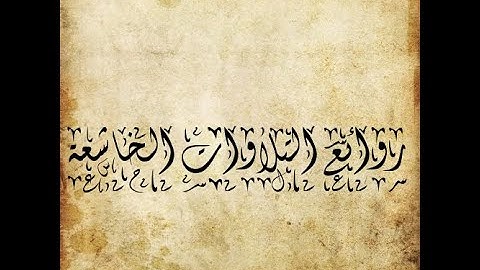 روائع التلاوات الخاشعة